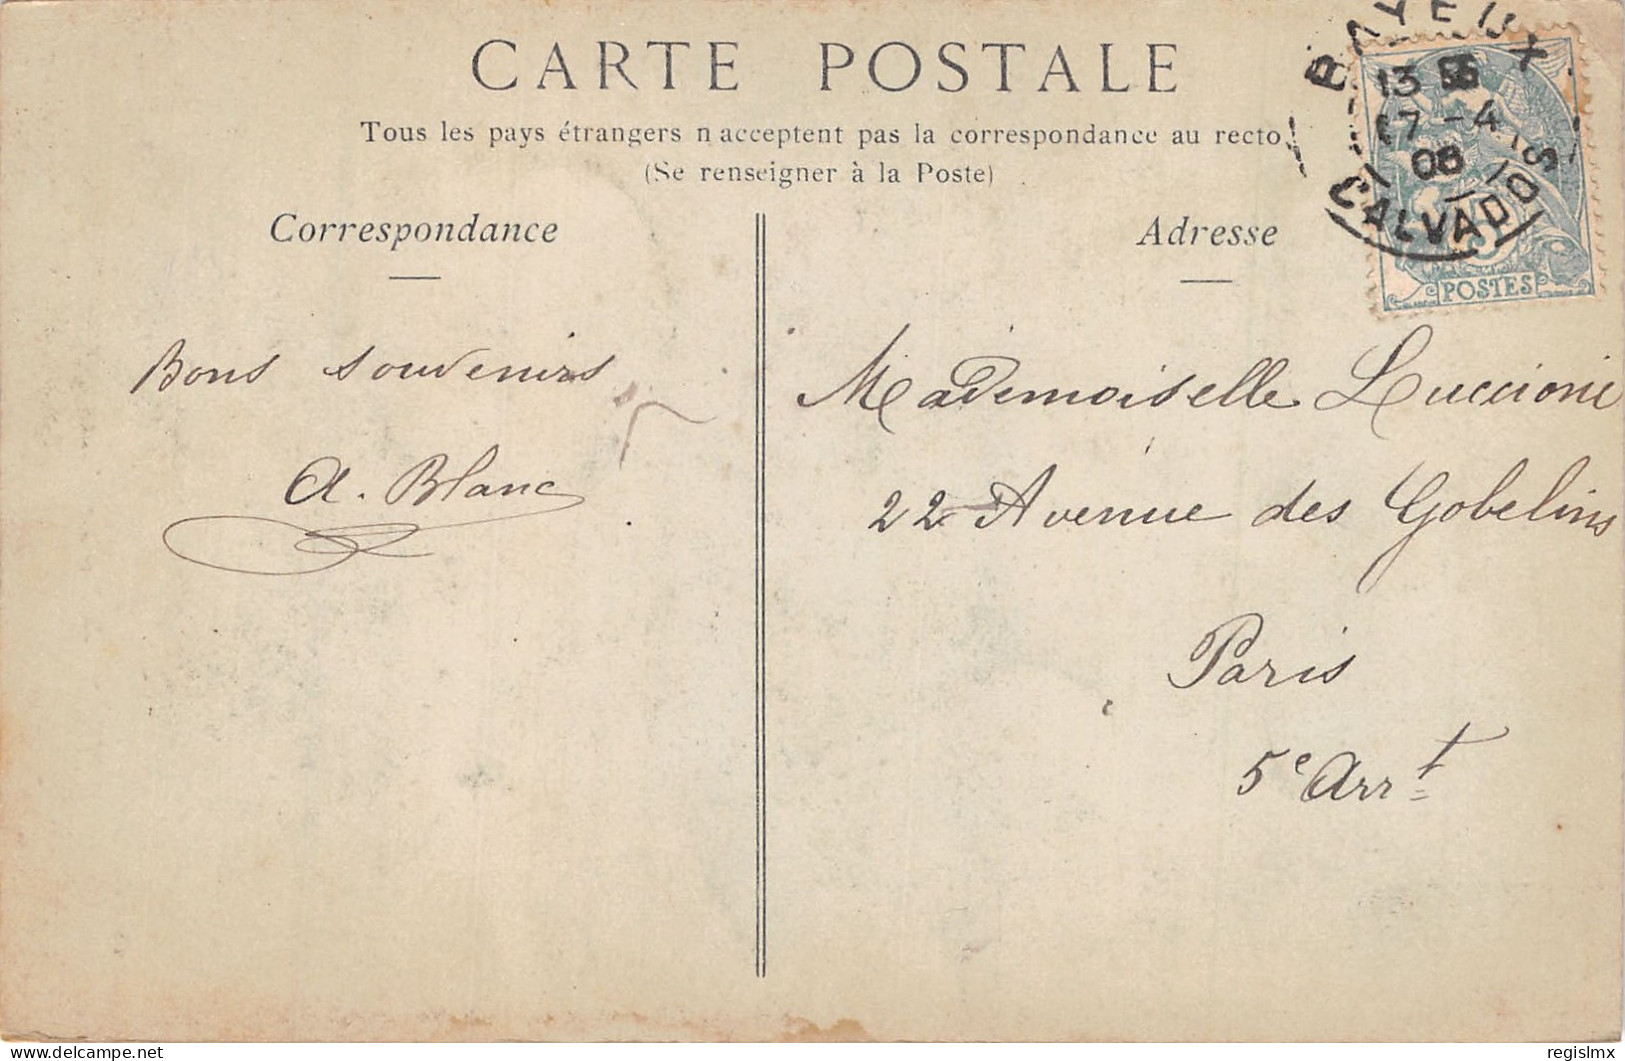 CARTE POSTALE
Tous les pays étrangers n acceptent pas la correspondance au recto
(Se renseigner à la Poste)
Correspondance
Adresse
BAYEUX
13
17 -4
08
CALVADOS
5
POSTES
Bons souvenirs
A. Blanc
Mademoiselle Luccioni
22 Avenue des Gobelins
Paris
5e Arrt
delcampe.net
regislmx